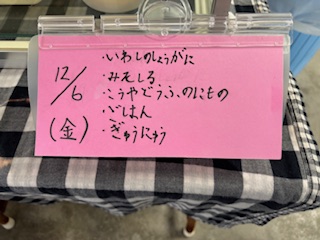 12/6
(金)
・いわしのしょうがに
・みそしる
・こうやどうふのにもの
・ごはん
・ぎゅうにゅう